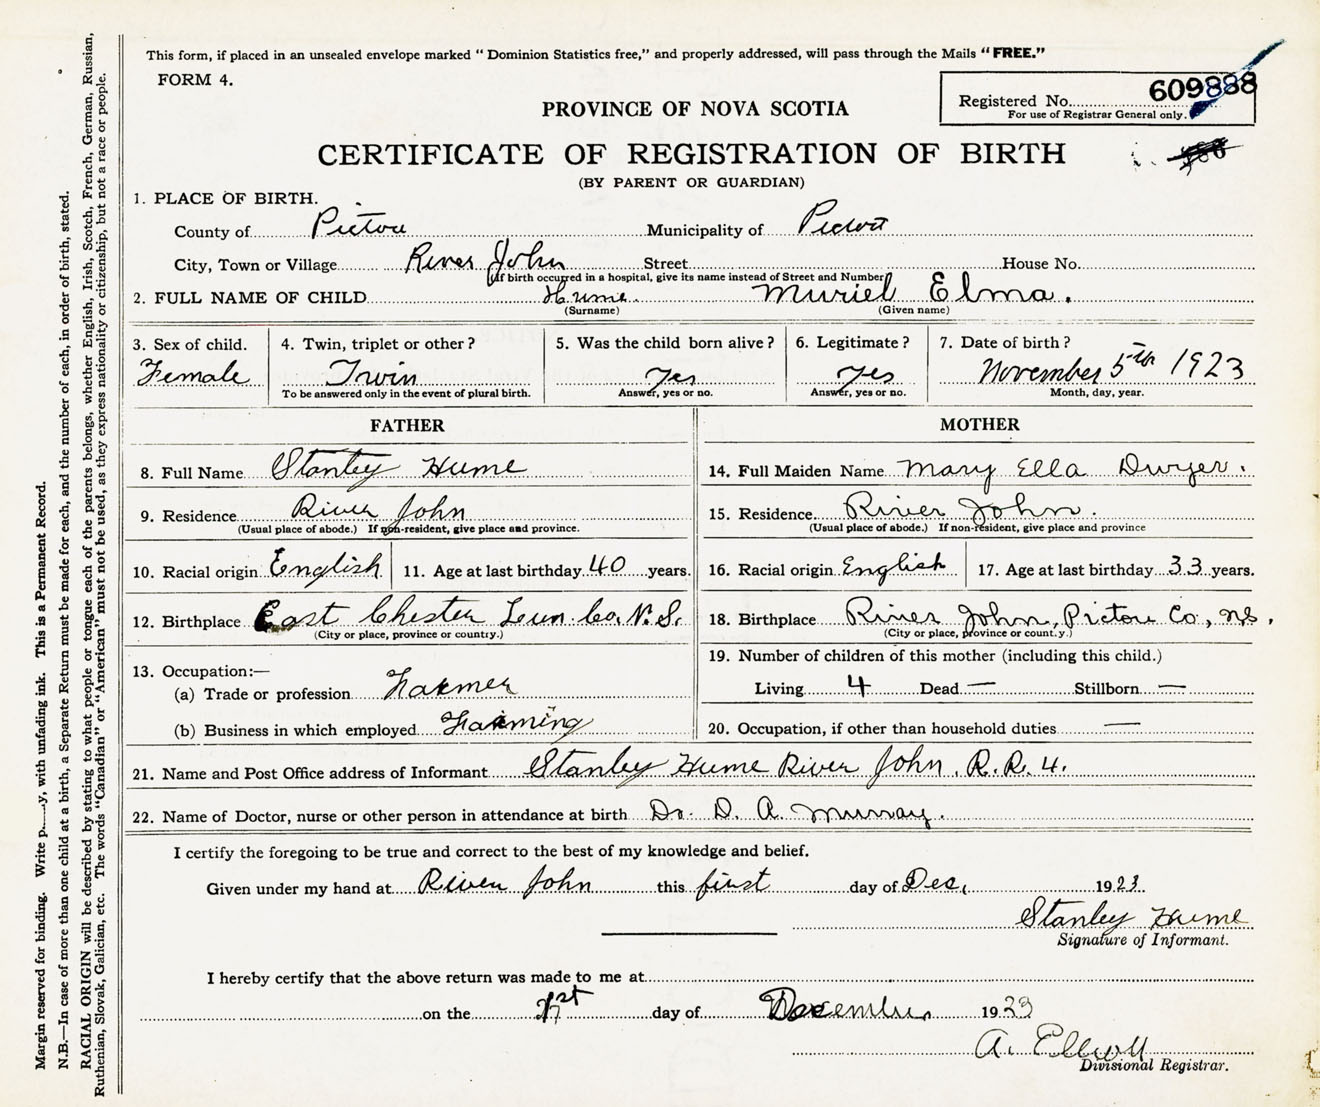 This form, if placed in an unsealed envelope marked " Dominion Statistics free," and properly addressed, will pass through the Mails "FREE."
FORM 4.
Registered No. 609888
For use of Registrar General only.
PROVINCE OF NOVA SCOTIA
CERTIFICATE OF REGISTRATION OF BIRTH
(BY PARENT OR GUARDIAN)
1. PLACE OF BIRTH.
County of Pictou Municipality of Pictou
City, Town or Village River John Street House No.
(If birth occurred in a hospital, give its name instead of Street and Number)
2. FULL NAME OF CHILD Hume Muriel Elma.
(Surname) (Given name)
3. Sex of child. 4. Twin, triplet or other? 5. Was the child born alive? 6. Legitimate? 7. Date of birth?
Female Twin Yes Yes November 5th 1923
To be answered only in the event of plural birth. Answer, yes or no. Answer, yes or no. Month, day, year.
FATHER MOTHER
8. Full Name Stanley Hume 14. Full Maiden Name Mary Ella Dwyer.
9. Residence River John 15. Residence River John.
(Usual place of abode.) If non-resident, give place and province. (Usual place of abode.) If non-resident, give place and province
10. Racial origin English 11. Age at last birthday 40 years. 16. Racial origin English 17. Age at last birthday 33 years.
12. Birthplace East Chester Lun. Co. N.S. 18. Birthplace River John, Pictou Co., NS.
(City or place, province or country.) (City or place, province or count.y.)
13. Occupation:— 19. Number of children of this mother (including this child.)
(a) Trade or profession Farmer Living 4 Dead — Stillborn —
(b) Business in which employed Farming 20. Occupation, if other than household duties —
21. Name and Post Office address of Informant Stanley Hume River John. R.R. 4.
22. Name of Doctor, nurse or other person in attendance at birth Dr. D. A. Murray.
I certify the foregoing to be true and correct to the best of my knowledge and belief.
Given under my hand at River John this first day of Dec. 1923.
Stanley Hume
Signature of Informant.
I hereby certify that the above return was made to me at
on the day of December 1923
Divisional Registrar.
Margin reserved for binding. Write with unfading ink. This is a Permanent Record.
N.B.—In case of more than one child at a birth, a Separate Return must be made for each, and the number of each, in order of birth, stated.
RACIAL ORIGIN will be described by stating to what people or tongue each of the parents belongs, whether English, Irish, Scotch, French, German, Russian,
Ruthenian, Slovak, Galician, etc. The words "Canadian" or "American" must not be used, as they express nationality or citizenship, but not a race or people.